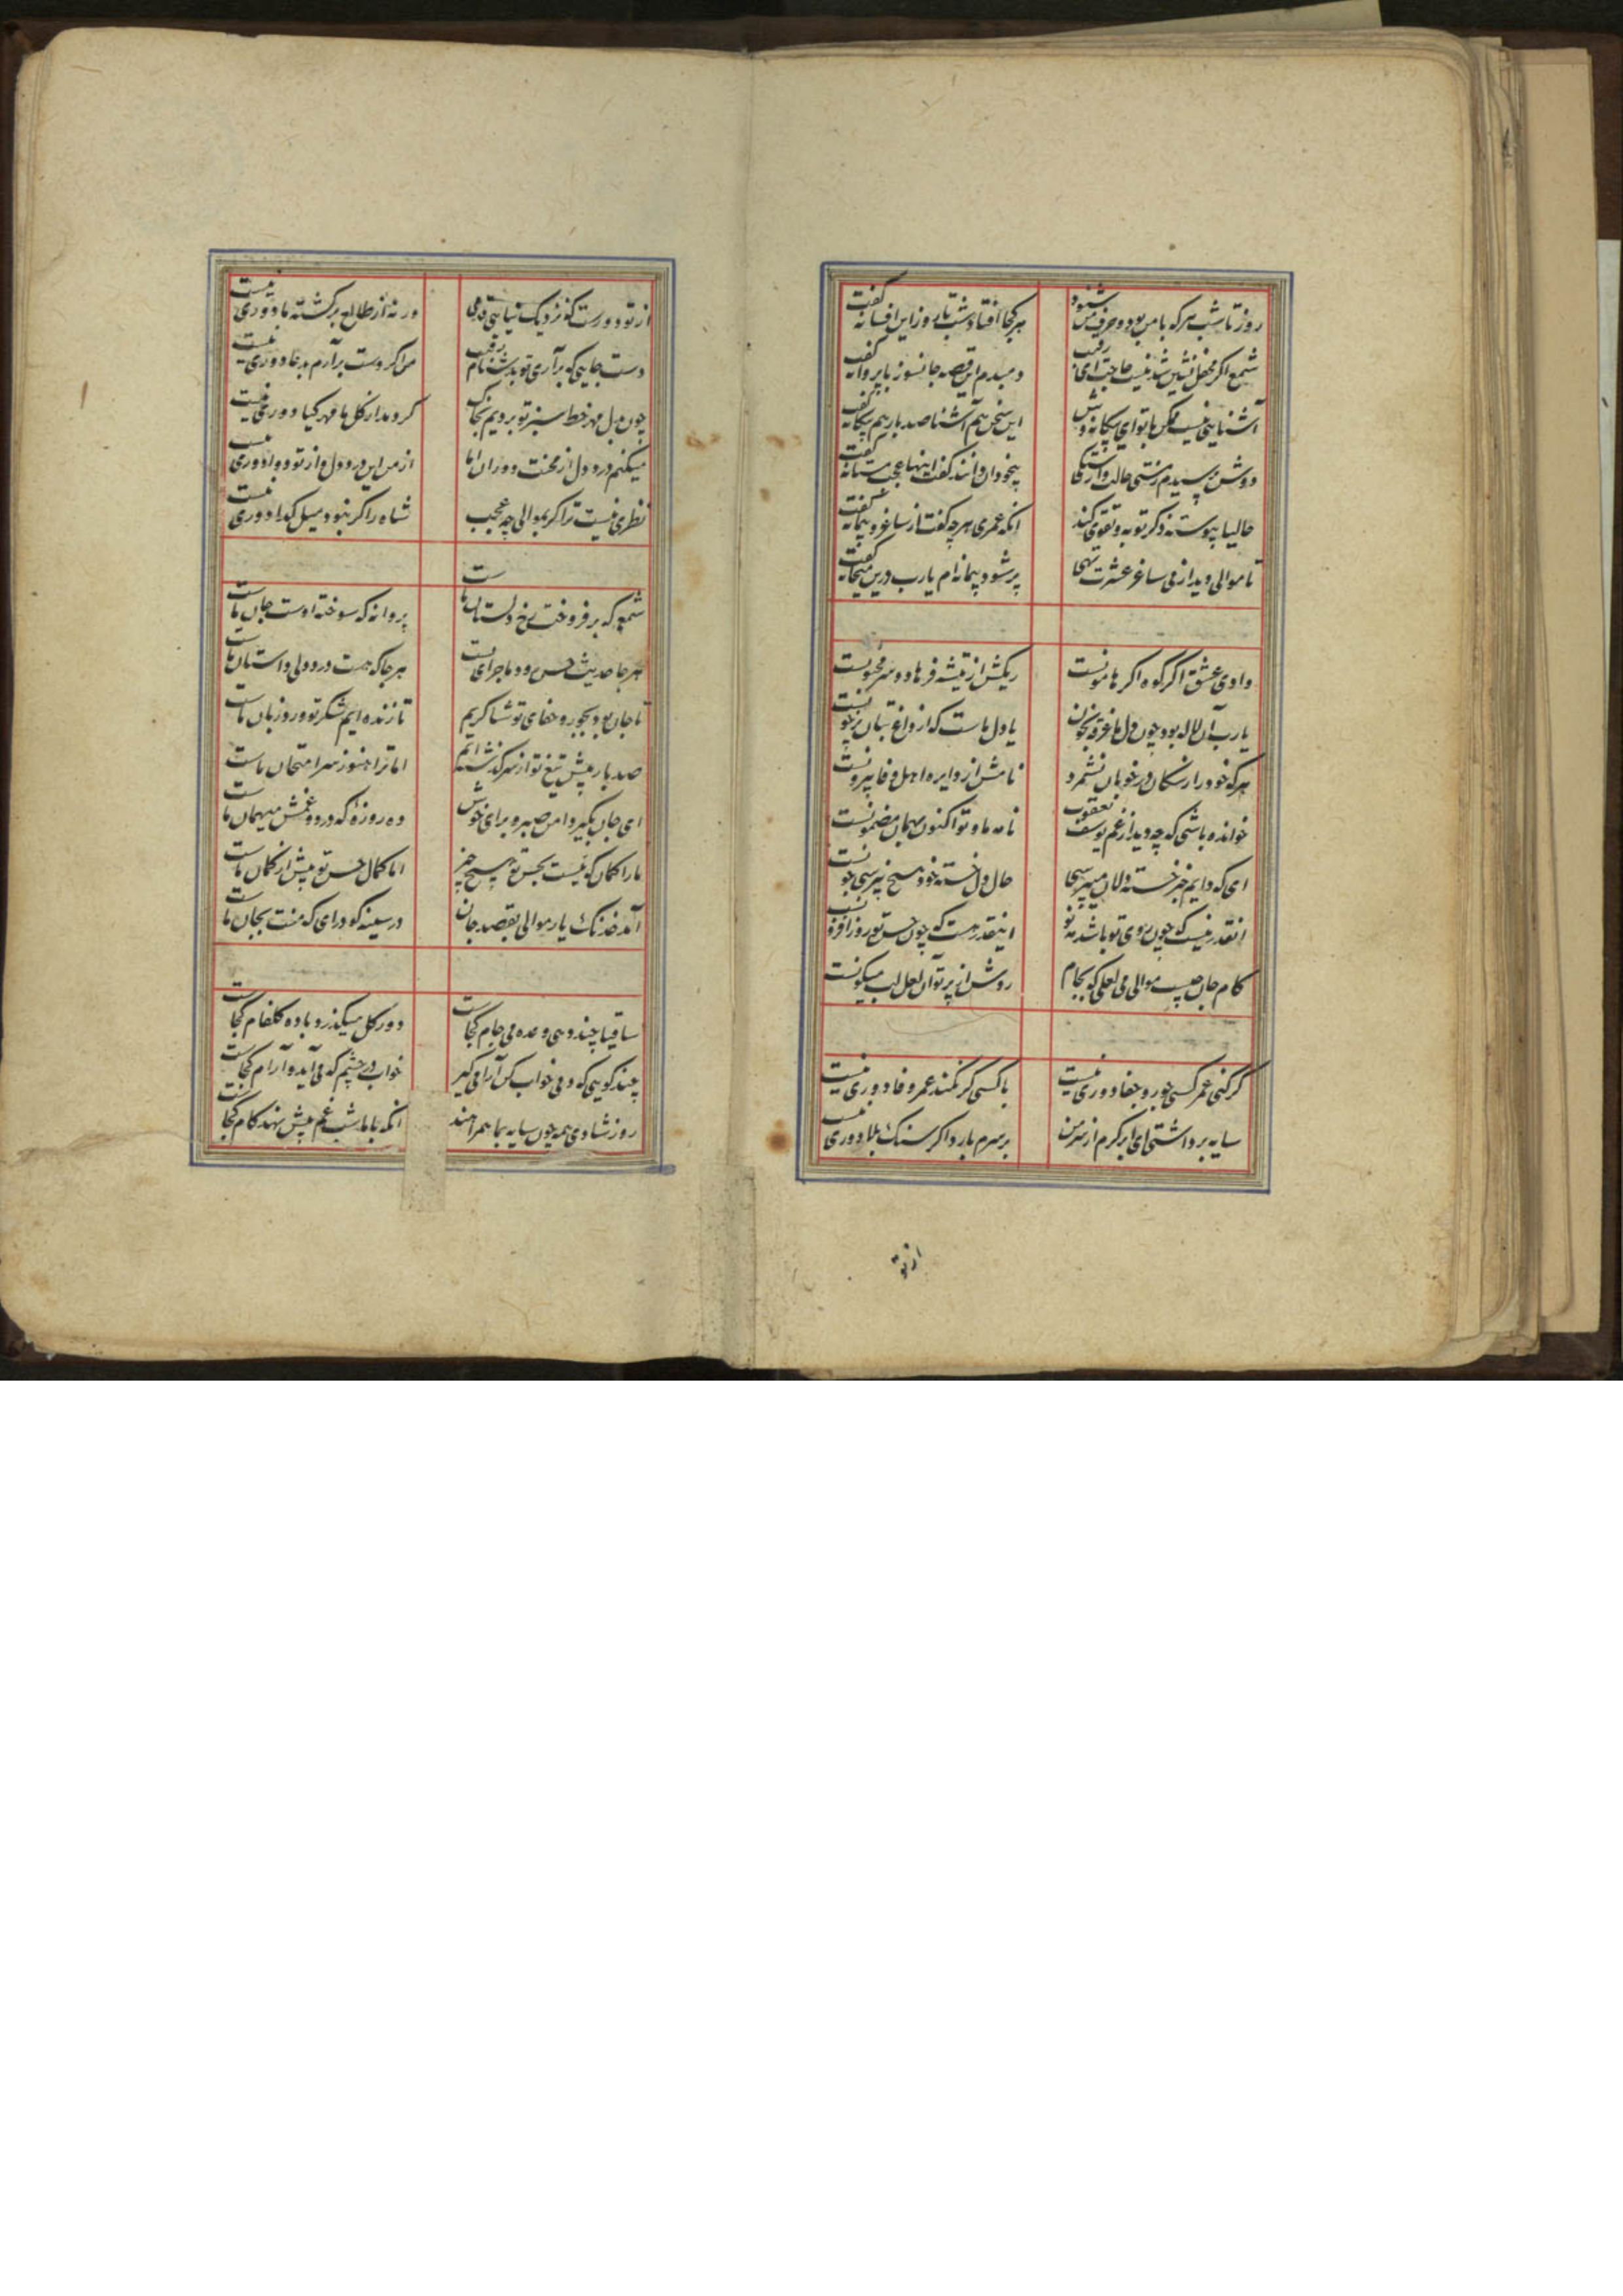 روز تا شب هر که با من بود و حرف من شنود هر کجا افتاد شب تا روز این افسانه گفت
شمع اکر محفل نشین شد نیست حاجت ای رقیب دمبدم این قصه جانسوز با پروانه گفت
آشنایی نیست ممکن با تو ای بیکانه وش این سخن هم آشنا صد بار هم بیکانه گفت
دوش پرسیدم ز مستی حالت وارستکی بیخودان دانند کفت اینها عجب مستانه گفت
حالیا پیوسته ذکر توبه و تقوی کند انکه عمری هر چه کفت از ساغر و پیمانه گفت
تا موالی دید از می ساغر عشرت تهی پر شود پیمانه ام یارب درین میخانه گفت
وادی عشق اکر کوه اکر هامونست ریکش از تیشه فرهاد و سر مجنونست
یارب آن لاله بود چون دل ما غرقه بخون یا دل ماست که از داغ بتان پر خونست
هر که خود را ز سکان در خوبان نشمرد نامش از دایره اهل وفا بیرونست
خوانده باشی که چه دید از غم یوسف یعقوب نامه ما و تو اکنون بهمان مضمونست
ای که دایم خبر خسته دلان میپرسی حال دل خسته خود هیچ نپرسی چونست
انقدر نیست که چون روی تو باشد مه نو اینقدر هست که چون حسن تو روز افزونست
کام جان حسب موالی می لعلی که بجام روشن از پرتو آن لعل لب میکونست
کر کنی عمر کسی جور و جفا دوری نیست با کسی کر نکند عمر وفا دوری نیست
سایه برداشتی ای ابر کرم از سر من بر سرم بارد اکر سنک بلا دوری نیست
از تو
از تو دورست که نزدیک نیایی قدمی ورنه از طالع برکشته ما دوری نیست
دست جایی که برآری تو بدشنام رقیب من اکر دست برآرم بدعا دوری نیست
چون بدل مهر خط سبز تو بردیم بخاک کر دمد از کل ما مهر کیا دوری نیست
میکنم درد دل از محنت دوران اما از من این درد دل و از تو دوا دوری نیست
نظری نیست ترا کر بموالی چه عجب شاه را کر نبود میل کدا دوری نیست
شمعی که برفروخت رخ دلستان ماست پروانه که سوخته اوست جان ماست
هر جا حدیث حسن رود ماجرای تست هر جا که هست درد دلی داستان ماست
تا جان بود بجور و جفای تو شاکریم تا زنده ایم شکر تو ورد زبان ماست
صد بار پیش تیغ تو از سر کذشته ایم اما ترا هنوز سر امتحان ماست
ای جان بکیر دامن صبر و برای خوش ده روزه که درد و غمش میهمان ماست
ما را کمان که نیست بحسن تو هیچ چیز اما کمال حسن تو بیش از کمان ماست
آمد خدنک یار موالی بقصد جان در سینه کو درای که منت بجان ماست
ساقیا چند دهی وعده می جام کجاست دور کل میکذرد باده کلفام کجاست
چند کویی که دمی خواب کن آرامی کیر خواب در چشم که می آید و آرام کجاست
روز شادی همه چون سایه بما همراهند انکه با ما شب غم پیش نهد کام کجاست